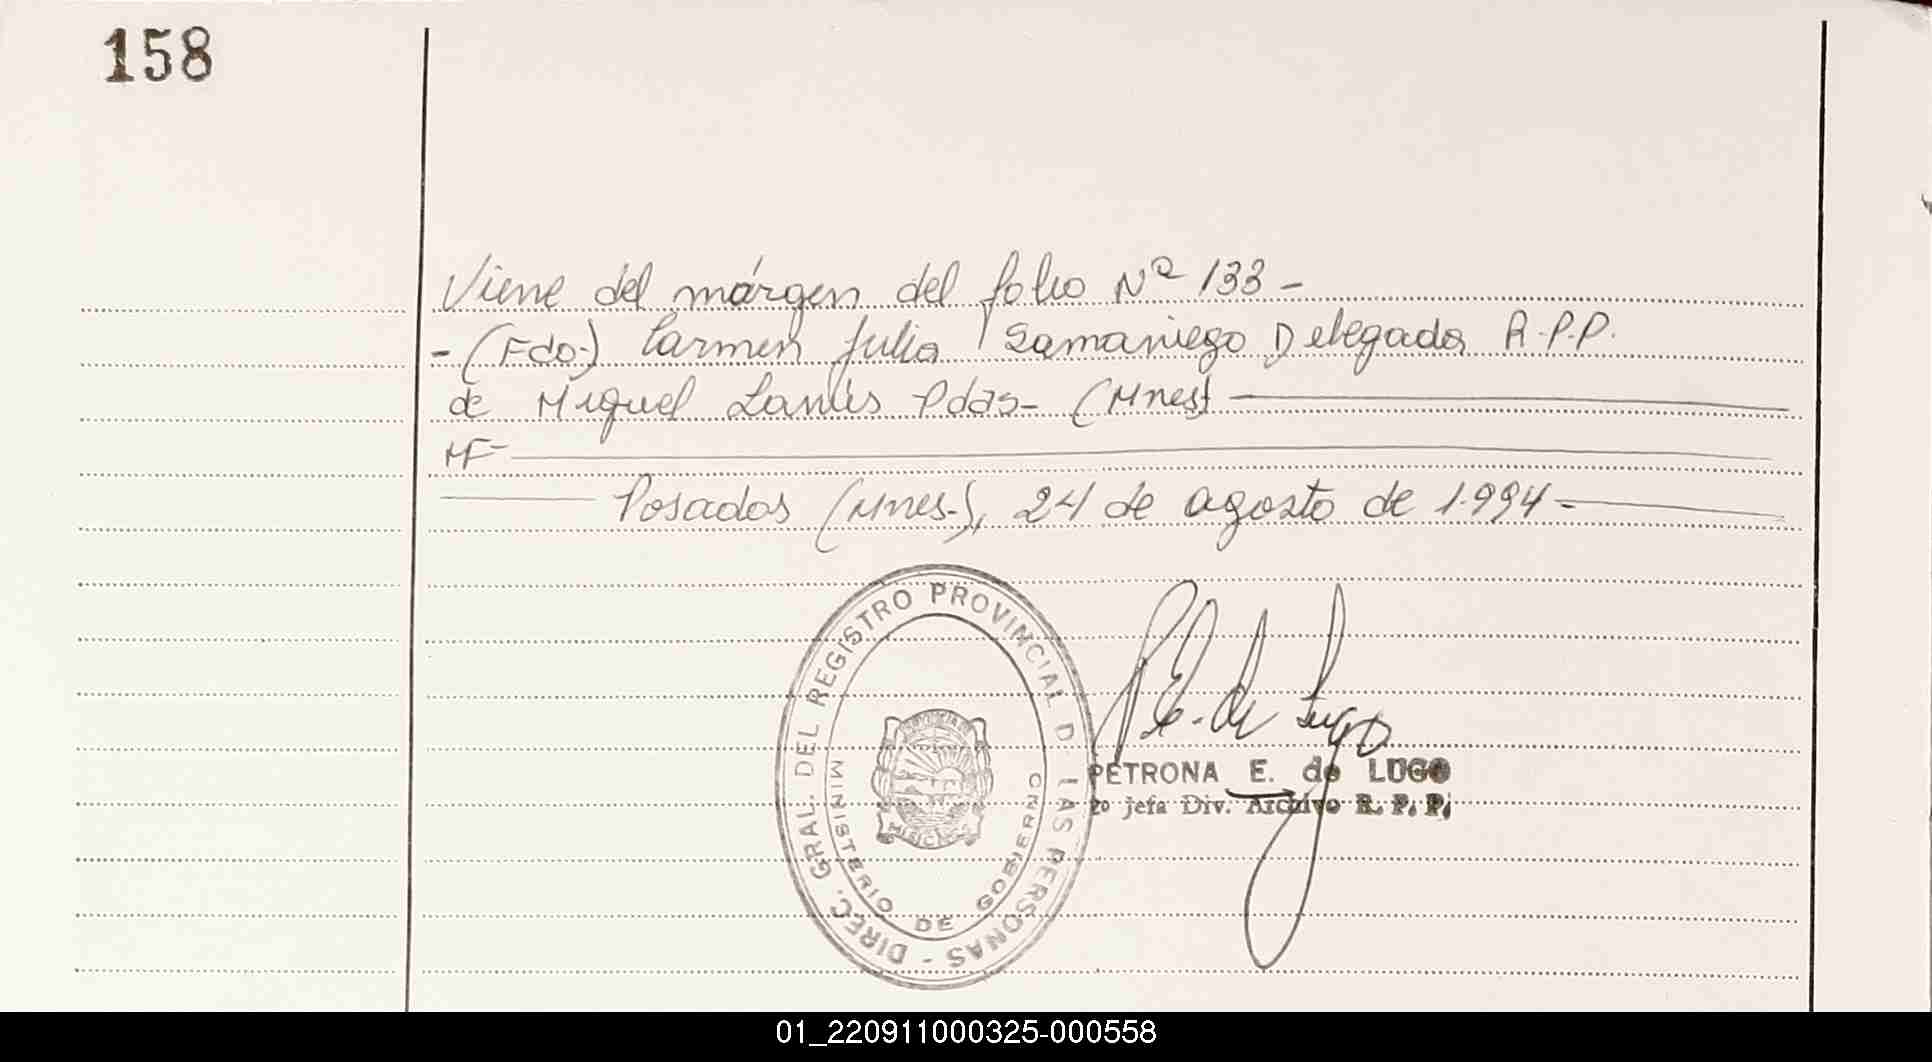 158
Viene del márgen del folio Nº 133-
- (Fdo-) Carmen Julia Samaniego Delegada R.P.P.
de Miguel Lanús Pdas- (Mnes)
MF-
Posadas (Mnes-), 24 de agosto de 1.994-
DIREC. GRAL. DEL REGISTRO PROVINCIAL D LAS PERSONAS -
MINISTERIO DE GOBIERNO
MISIONES
P.E. de Lugo
PETRONA E. de LUGO
2º Jefa Div. Archivo R. P. P.
01_220911000325-000558